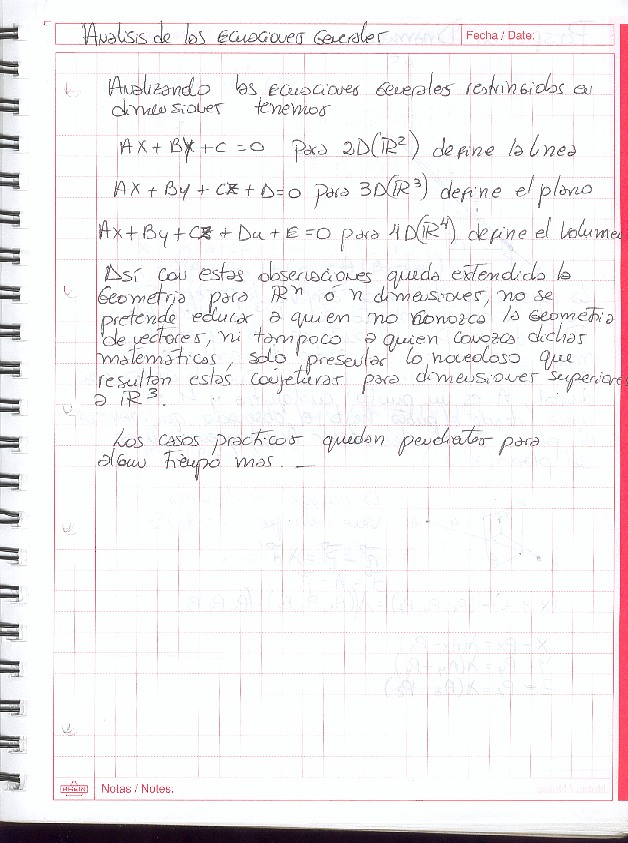 Analisis de las Ecuaciones Generales
Fecha / Date:
Analizando las ecuaciones Generales restringidas en
dimensiones tenemos
AX + BY + C = 0 para 2D(ℝ²) define la linea
AX + By + CZ + D = 0 para 3D(ℝ³) define el plano
Ax + By + CZ + Du + E = 0 para 4D(ℝ⁴) define el Volumen
Así con estas observaciones queda extendida la
Geometria para ℝⁿ ó n dimensiones, no se
pretende educar a quien no conozca la Geometria
de vectores, ni tampoco a quien conozca dichas
matemáticas, solo presentar lo novedoso que
resultan estas conjeturas para dimensiones superiores
a ℝ³.
Los casos practicos quedan pendientes para
algun tiempo mas. —
RHEIN
Notas / Notes.